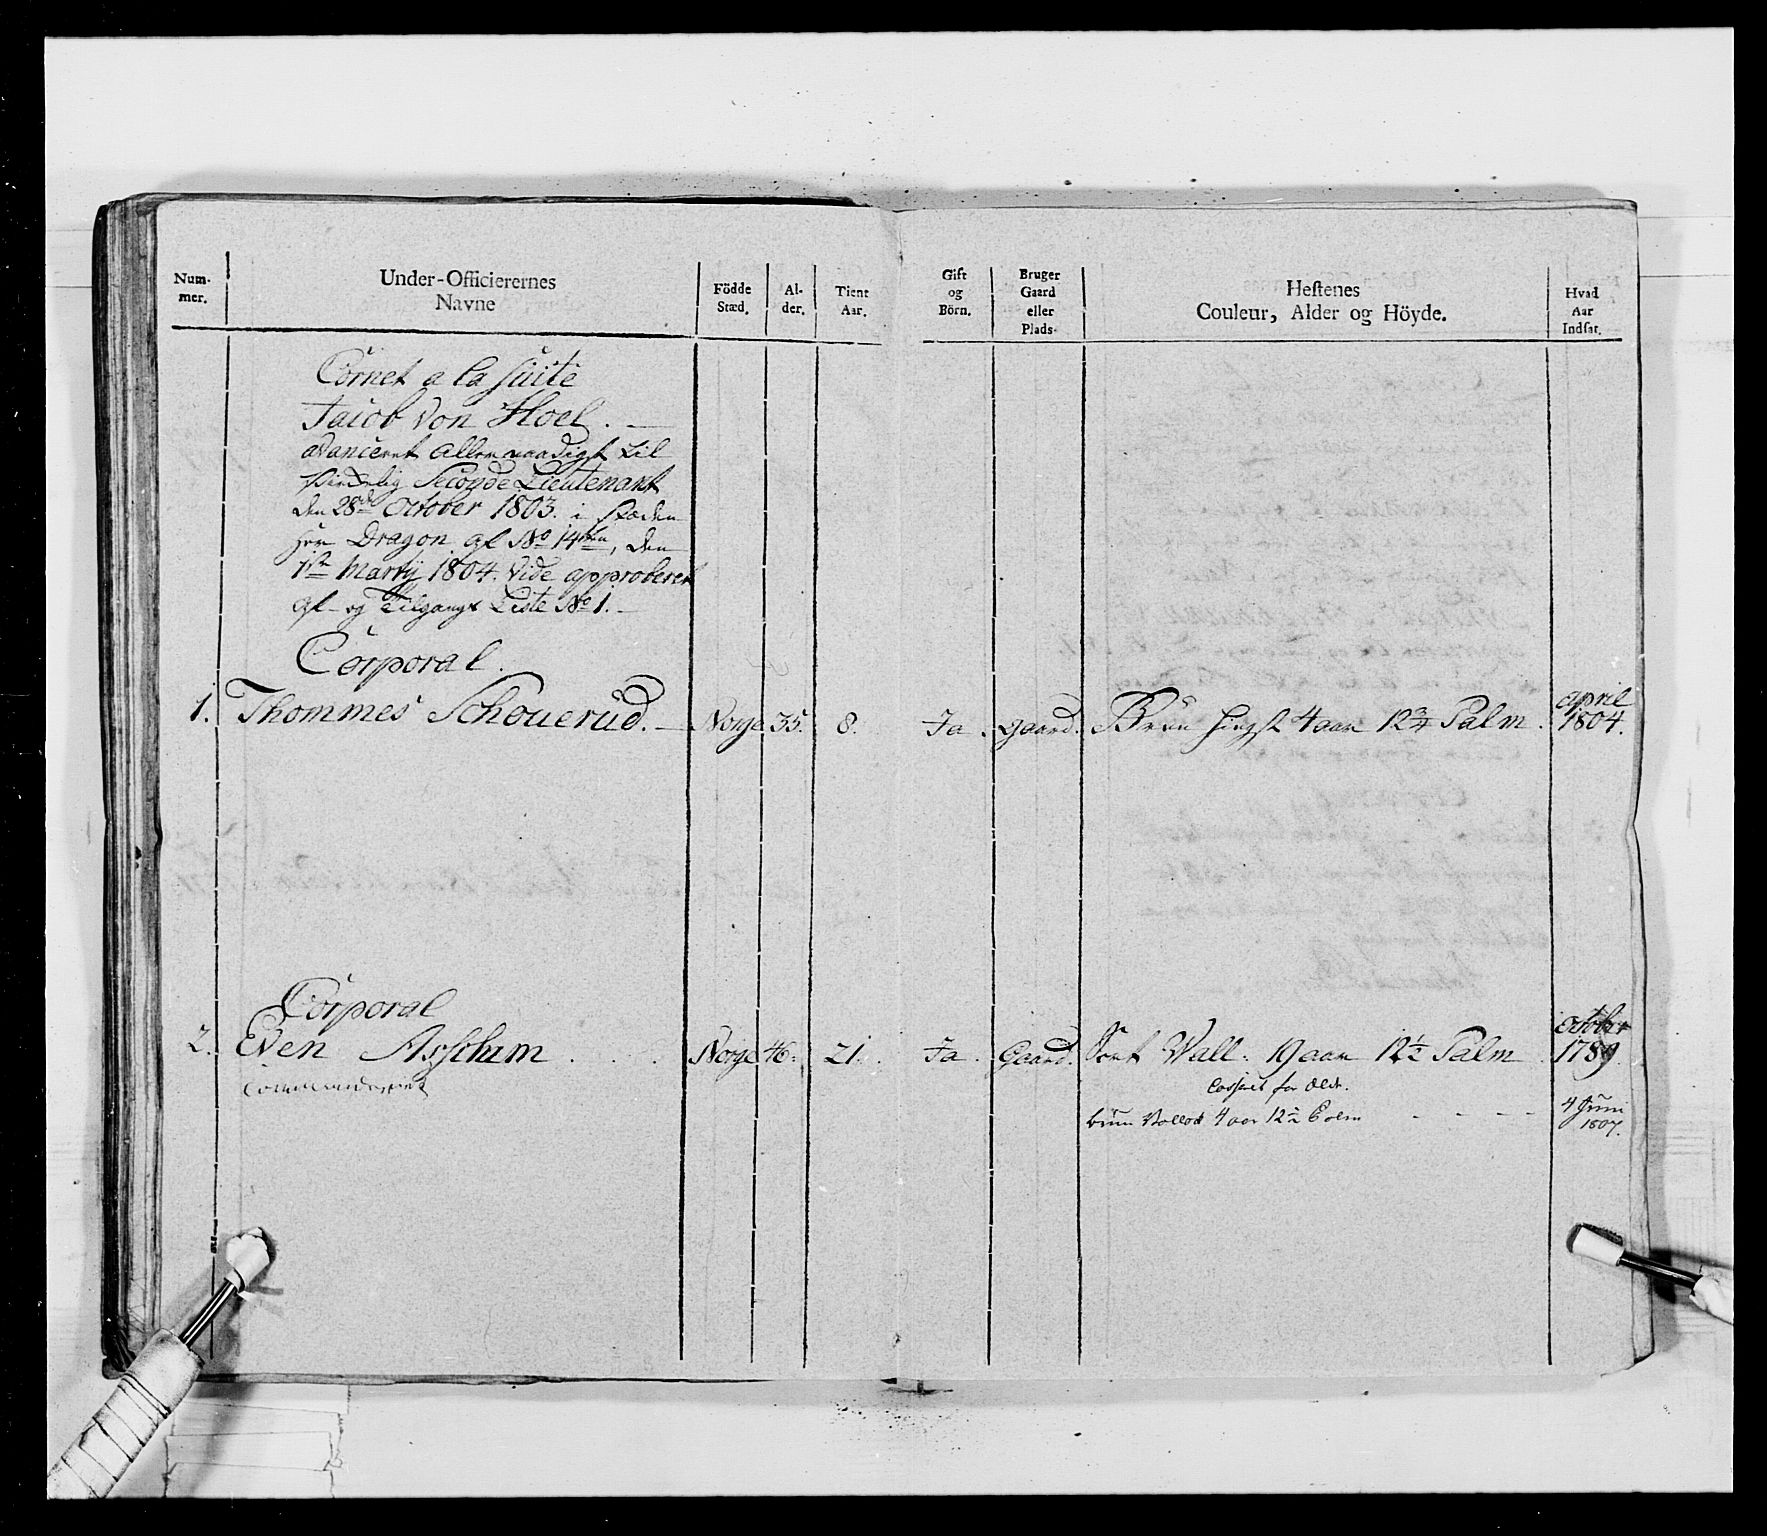 Num-
mer.
Under-Officierernes
Navne
Födde
Stæd.
Al-
der.
Tient
Aar.
Gift
og
Börn.
Bruger
Gaard
eller
Plads.
Heftenes
Couleur, Alder og Höyde.
Hvad
Aar
Indsat.
Cornet a la Suite
Jacob von Hoel.
avanceret allernaadigst til
virkelig Seconde Lieutenant
den 28de October 1803. i stæden
Dragon af No 14ten, den
1ste Martij 1804. Vide approberet
af- og Tilgangs Liste No 1.
Corporal.
1. Thommes Schouerud. Norge 35. 8. Ja. gaard. Brun hingst 4 aar 12 3/4 Palm. april 1804.
Corporal
2. Even Asschim Norge 46. 21. Ja. Gaard. Sort Vall. 19 aar 12 1/2 Palm October 1789
Commanderet
Casseret for Ælde.
bruun Vallach 4 aar 12 1/2 Palm - - - - 4 Juni
1807.